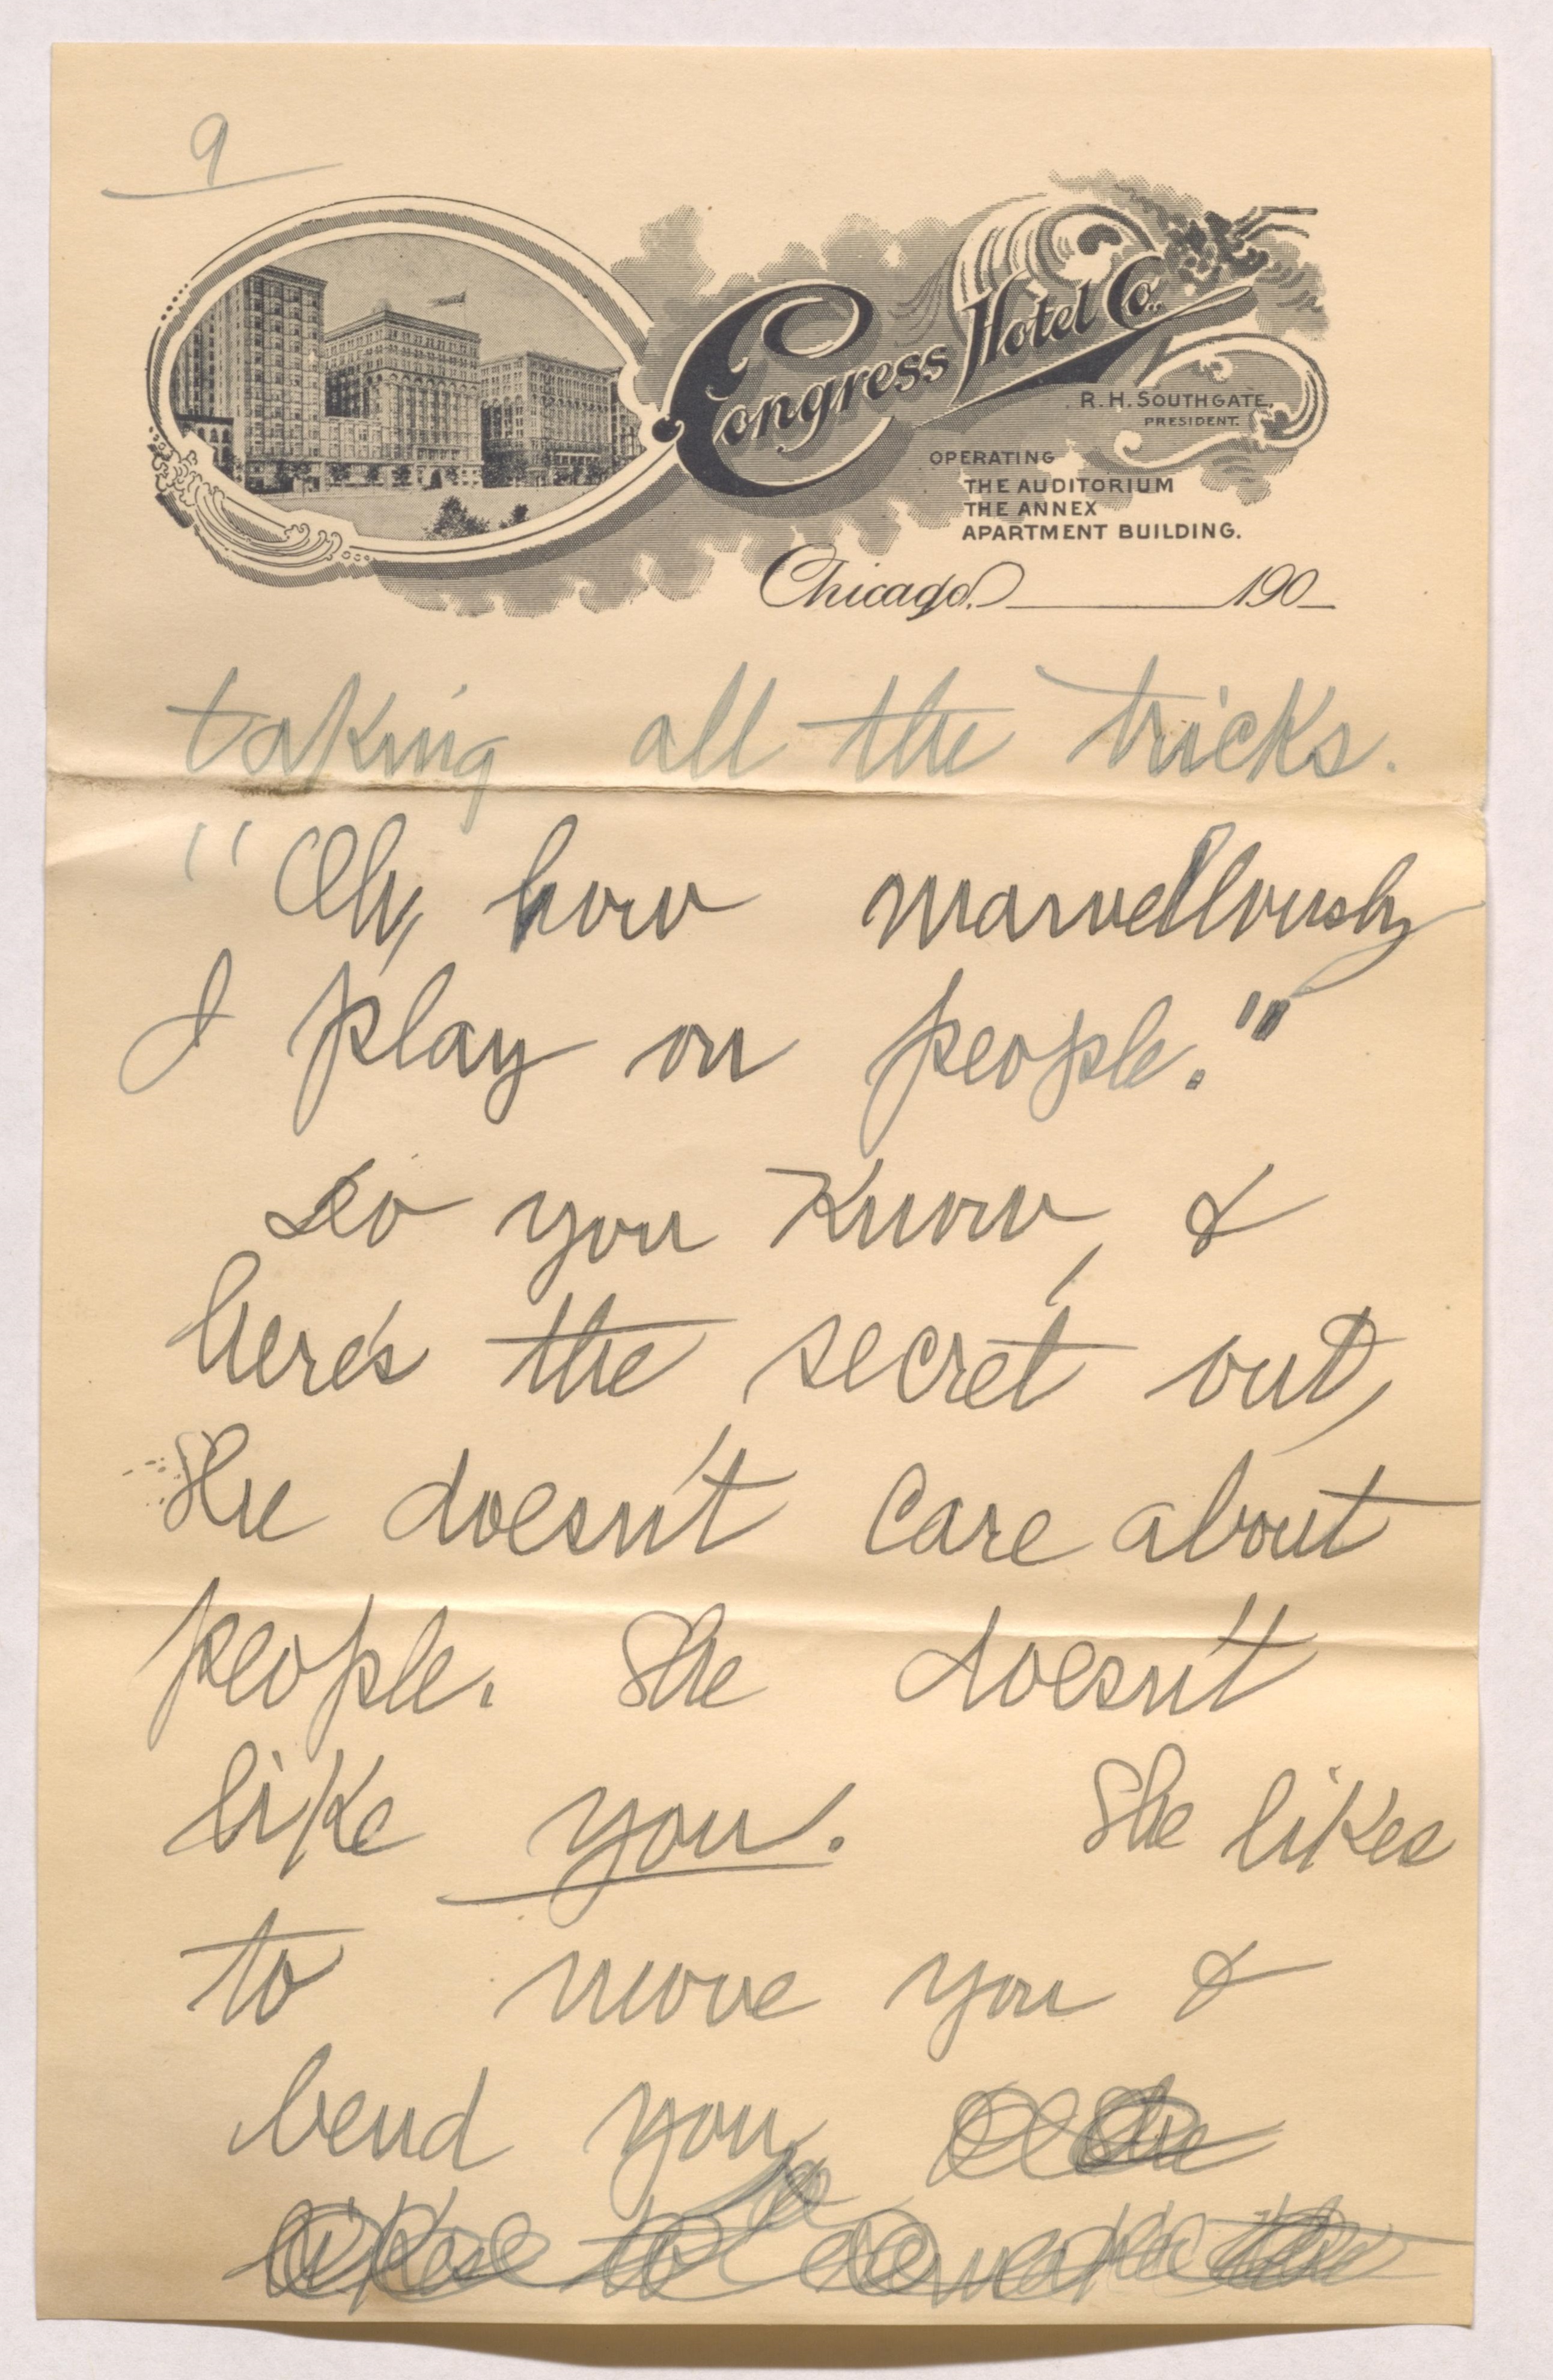 9
Congress Hotel Co.
R. H. SOUTHGATE,
PRESIDENT.
OPERATING
THE AUDITORIUM
THE ANNEX
APARTMENT BUILDING.
Chicago, 190
taking all the tricks.
"Oh, how marvellously
I play on people."
So you know, &
here's the secret out,
She doesn't care about
people. She doesn't
like you. She likes
to move you &
bend you, & she
likes to make the